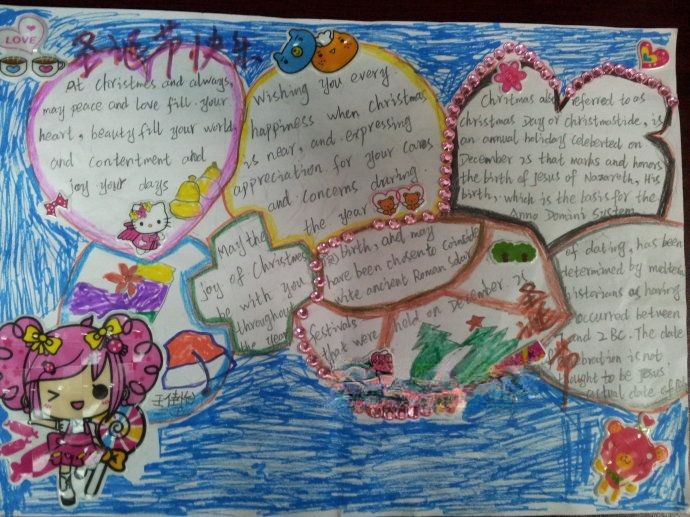 LOVE
圣诞节快乐
At christmes and always,
may peace and love fill your
heart, beauty fill your world,
and contentment and
joy your days
Wishing you every
happiness when christmas
is near, and expressing
appreciation for your cares
and concerns during
the year
Chritmas also referred to as
christmas Day or christmastide, is
an annual holiday celeberted on
December 25 that marks and honors
the birth of Jesus of Nazareth, His
birth, which is the basis for the
Anno Domini System
May the
joy of Christmas
be with you
throughout
the Year
birth, and may
have been chosen to Coincide
wite ancient Roman solar
festivals
that were held on December 25
圣诞节
of dating, has been
determined by
historians as having
occurred between
and 2 BC. The date
bration is not
thought to be Jesus
actual date of
王佳怡